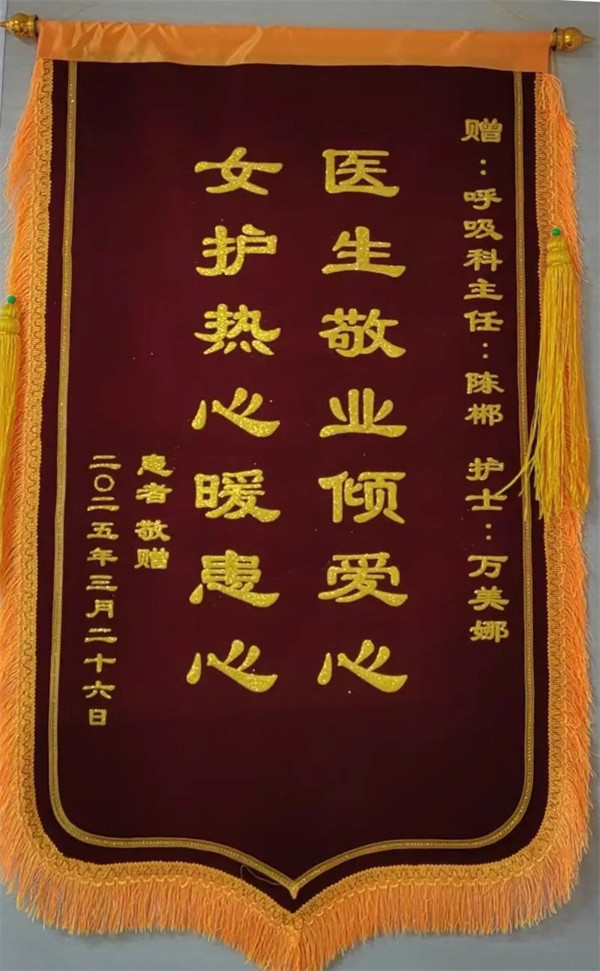 赠：呼吸科主任：陈郴 护士：万美娜
医生敬业倾爱心
女护热心暖患心
患者 敬赠
二〇二五年三月二十六日